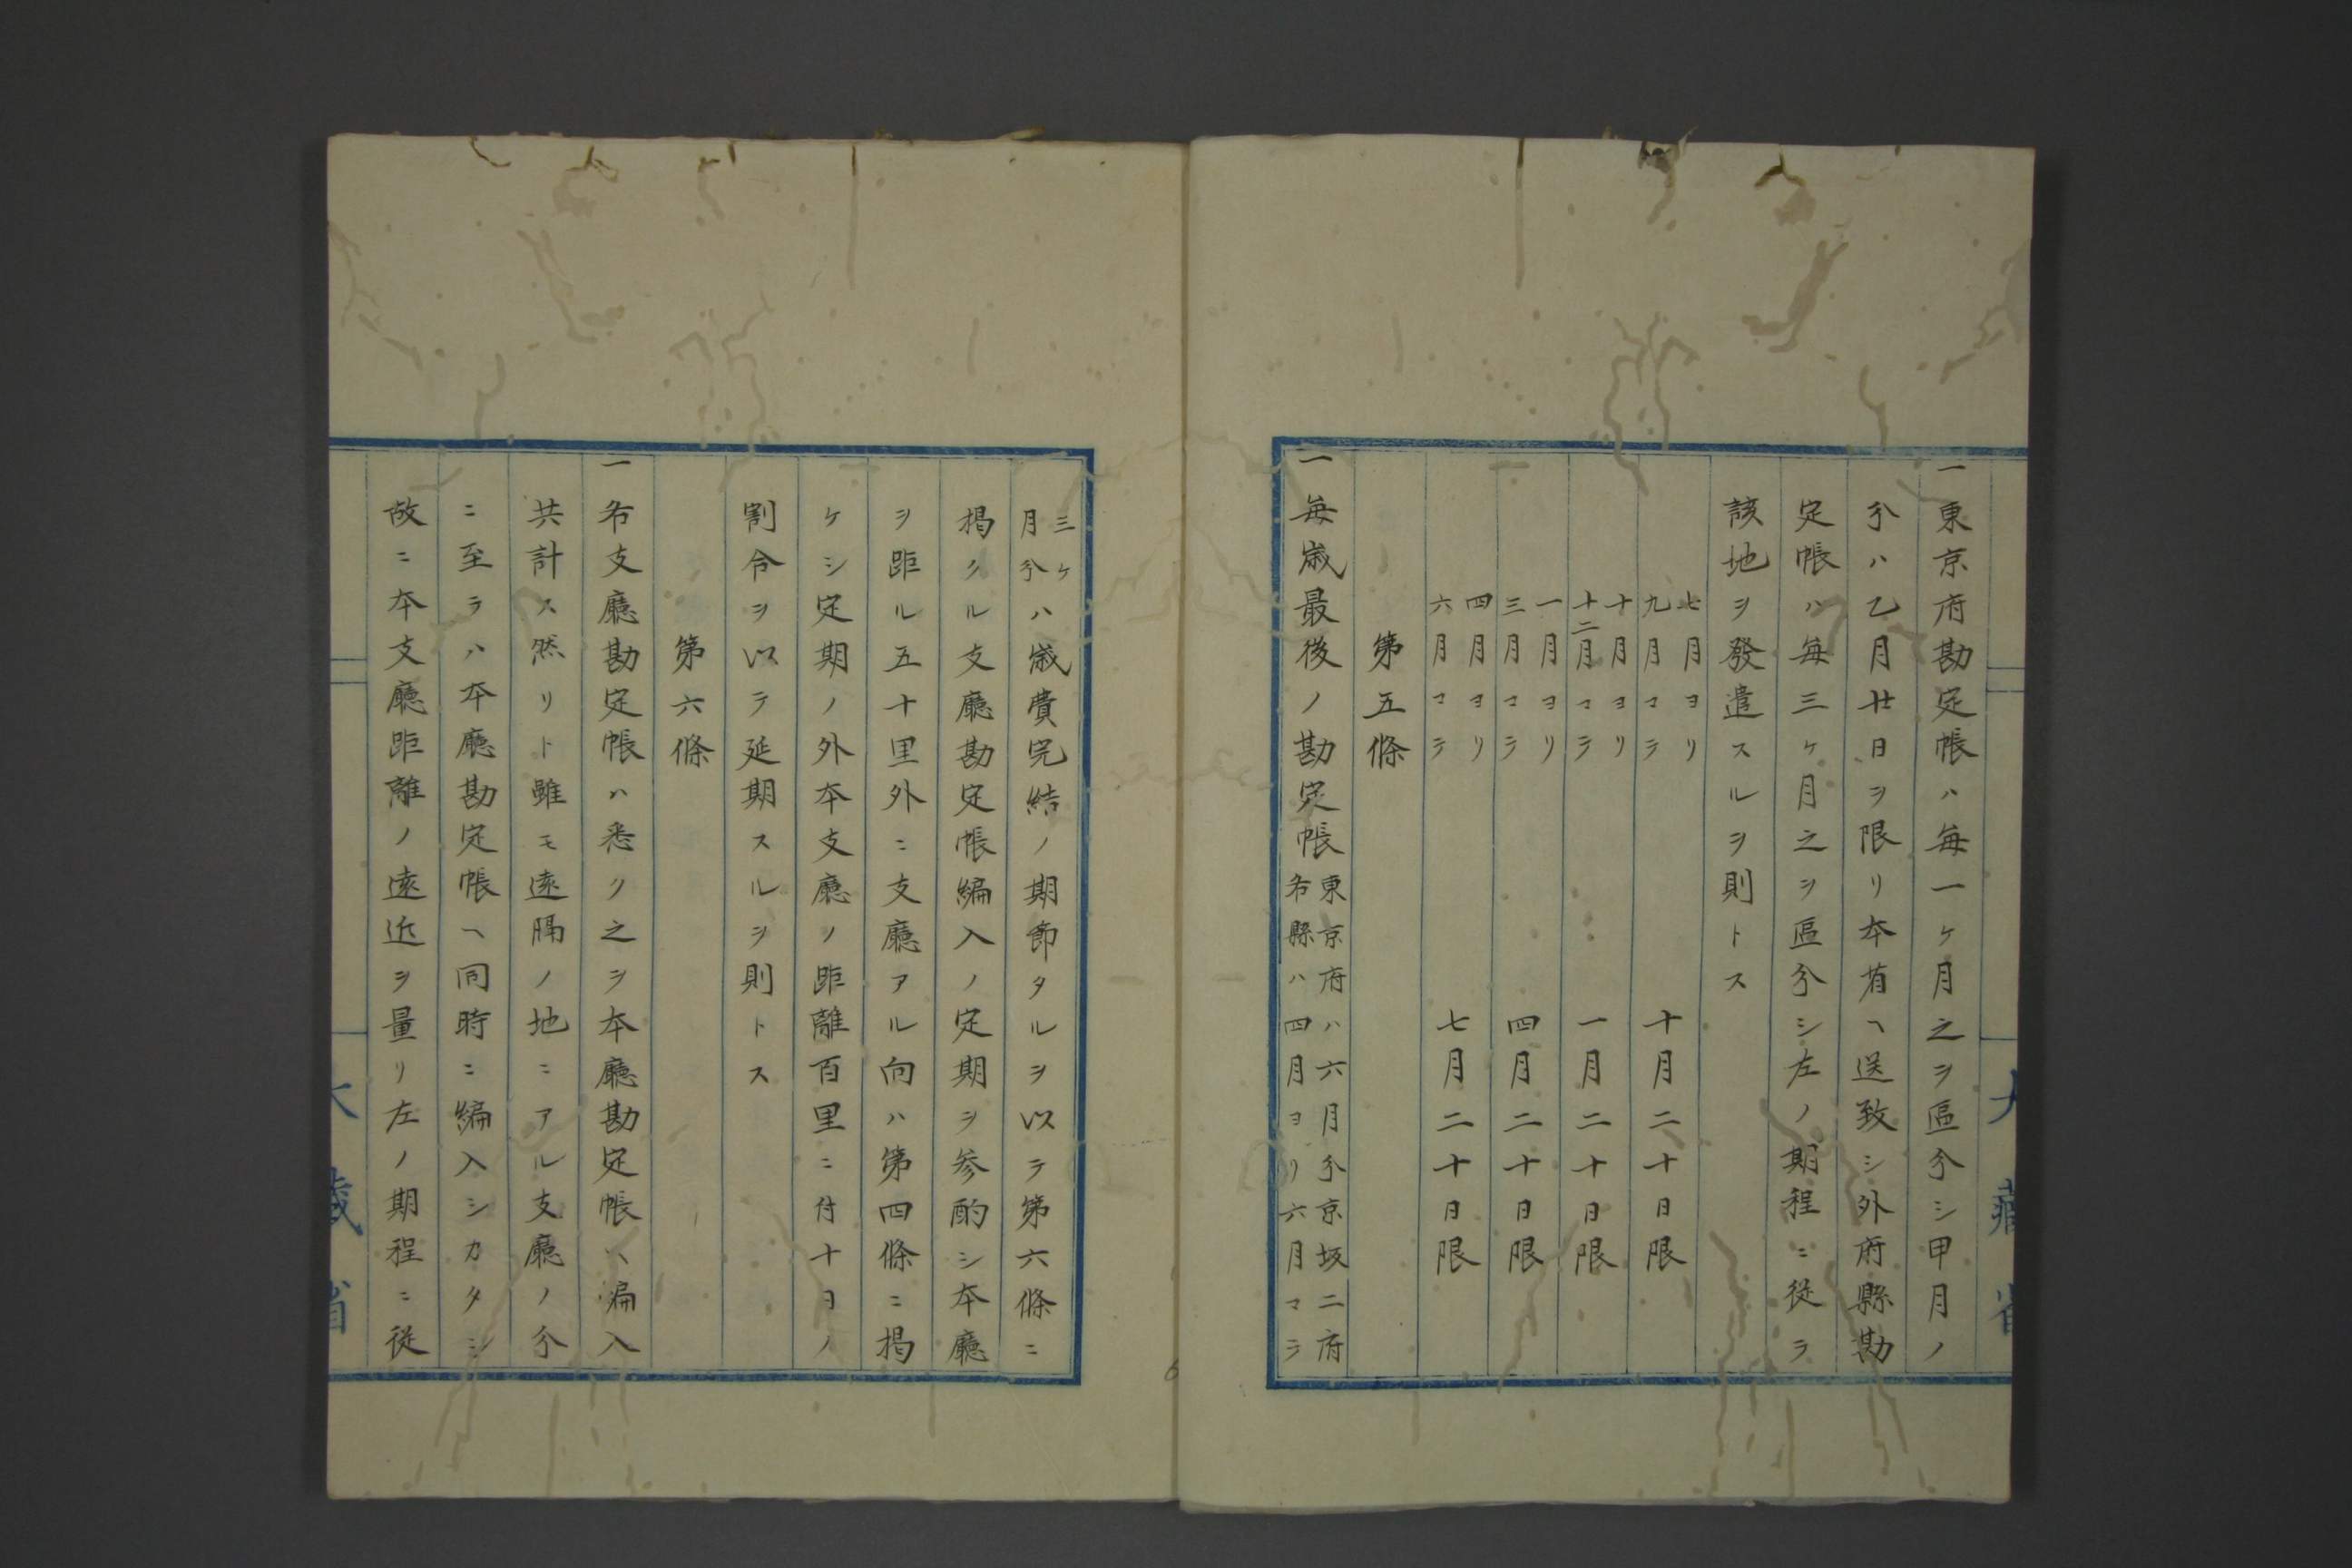 一東京府勘定帳ハ毎一ケ月之ヲ區分シ甲月ノ
分ハ乙月廿日ヲ限リ本省ヘ送致シ外府縣勘
定帳ハ毎三ケ月之ヲ區分シ左ノ期程ニ従ラ
該地ヲ發遣スルヲ則トス
七月ヨリ
九月マテ
十月二十日限
十月ヨリ
十二月マテ
一月二十日限
一月ヨリ
三月マテ
四月二十日限
四月ヨリ
六月マテ
七月二十日限
第五條
一毎歳最後ノ勘定帳
東京府ハ六月分京坂二府
各縣ハ四月ヨリ六月マテ
三ケ
月分ハ歳費完結ノ期節タルヲ以テ第六條ニ
掲クル支廳勘定帳編入ノ定期ヲ参酌シ本廳
ヲ距ル五十里外ニ支廳アル向ハ第四條ニ掲
ケシ定期ノ外本支廳ノ距離百里ニ付十日ノ
割合ヲ以テ延期スルヲ則トス
第六條
一各支廳勘定帳ハ悉ク之ヲ本廳勘定帳ヘ編入
共計ス然リト雖モ遠隔ノ地ニアル支廳ノ分
ニ至ラハ本廳勘定帳ヘ同時ニ編入シカタシ
故ニ本支廳距離ノ遠近ヲ量リ左ノ期程ニ従
大藏省